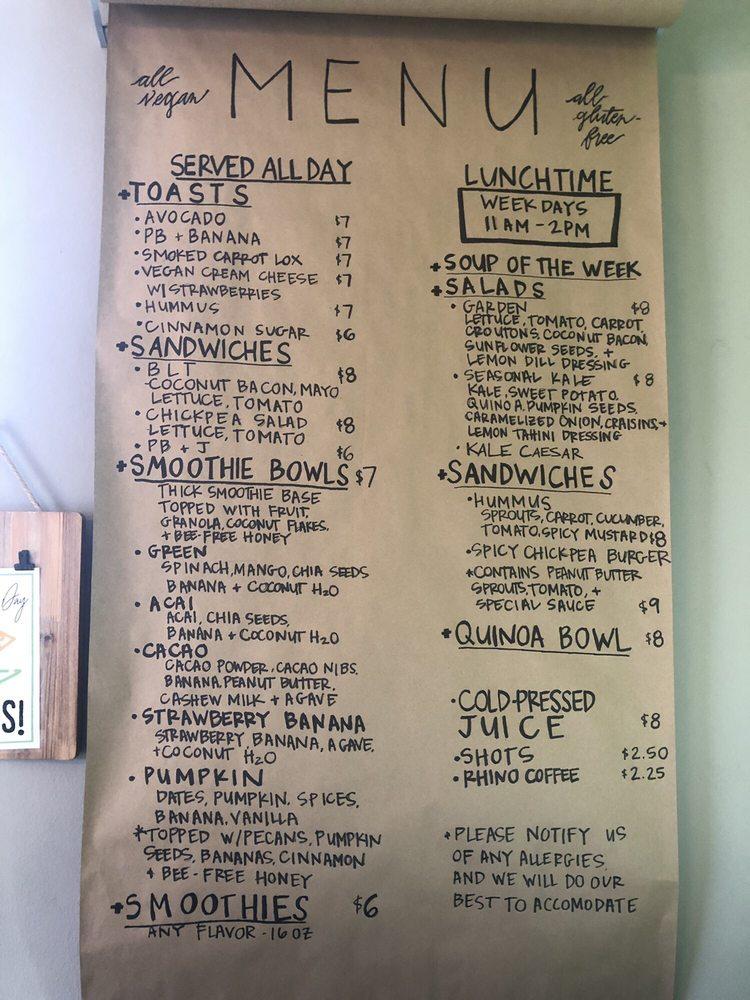 all vegan
MENU
all-gluten-free
SERVED ALL DAY
+TOASTS
• AVOCADO $7
• PB + BANANA $7
• SMOKED CARROT LOX $7
• VEGAN CREAM CHEESE $7
W/STRAWBERRIES
• HUMMUS $7
• CINNAMON SUGAR $6
+SANDWICHES
• BLT $8
-COCONUT BACON, MAYO
LETTUCE, TOMATO
• CHICKPEA SALAD $8
LETTUCE, TOMATO
• PB + J $6
+SMOOTHIE BOWLS $7
THICK SMOOTHIE BASE
TOPPED WITH FRUIT,
GRANOLA, COCONUT FLAKES,
+ BEE-FREE HONEY
• GREEN
SPINACH, MANGO, CHIA SEEDS
BANANA + COCONUT H2O
• ACAI
ACAI, CHIA SEEDS,
BANANA + COCONUT H2O
• CACAO
CACAO POWDER, CACAO NIBS,
BANANA, PEANUT BUTTER,
CASHEW MILK + AGAVE
• STRAWBERRY BANANA
STRAWBERRY BANANA, AGAVE,
+COCONUT H2O
• PUMPKIN
DATES, PUMPKIN, SPICES,
BANANA, VANILLA
*TOPPED W/PECANS, PUMPKIN
SEEDS, BANANAS, CINNAMON
+ BEE-FREE HONEY
+SMOOTHIES $6
ANY FLAVOR - 16 OZ
LUNCHTIME
WEEKDAYS
11AM - 2PM
+SOUP OF THE WEEK
+SALADS
• GARDEN $8
LETTUCE, TOMATO, CARROT,
CROUTONS, COCONUT BACON,
SUNFLOWER SEEDS, +
LEMON DILL DRESSING
• SEASONAL KALE $8
KALE, SWEET POTATO,
QUINOA, PUMPKIN SEEDS,
CARAMELIZED ONION, CRAISINS, +
LEMON TAHINI DRESSING
• KALE CAESAR
+SANDWICHES
• HUMMUS
SPROUTS, CARROT, CUCUMBER,
TOMATO, SPICY MUSTARD $8
• SPICY CHICKPEA BURGER
*CONTAINS PEANUT BUTTER
SPROUTS, TOMATO, +
SPECIAL SAUCE $9
+QUINOA BOWL $8
• COLD-PRESSED
JUICE $8
• SHOTS $2.50
• RHINO COFFEE $2.25
+PLEASE NOTIFY US
OF ANY ALLERGIES,
AND WE WILL DO OUR
BEST TO ACCOMODATE
Day
S!